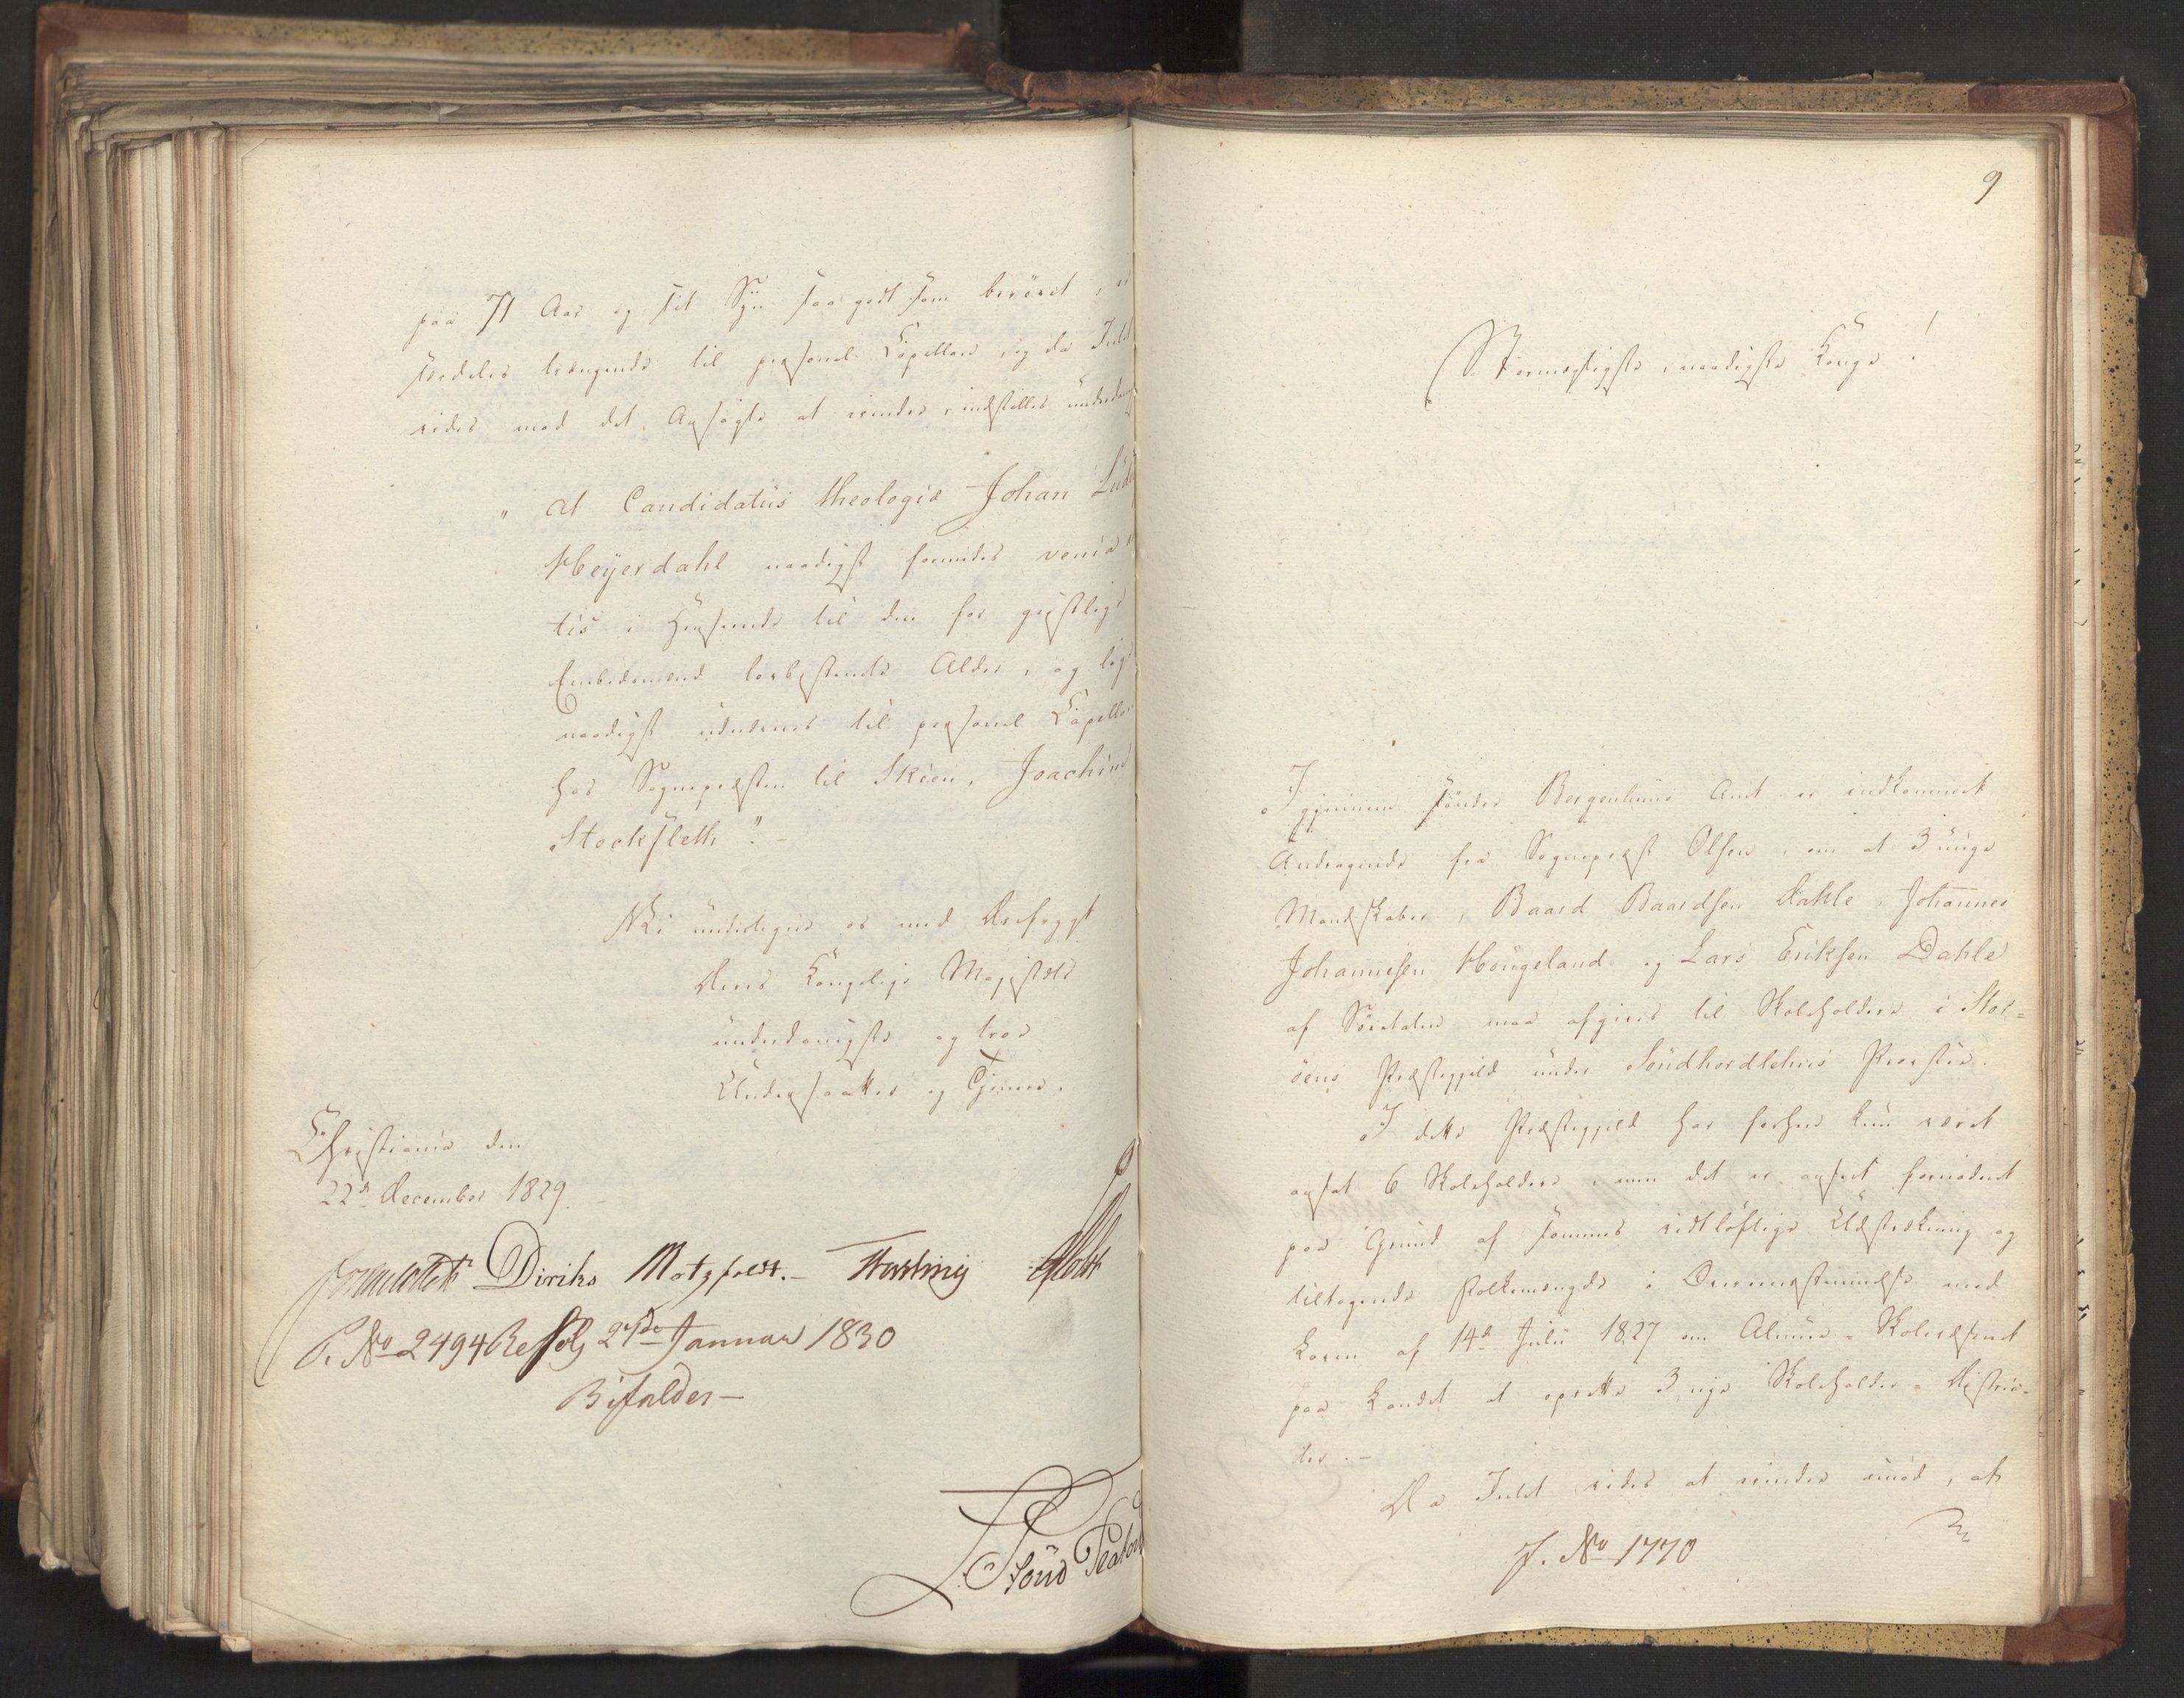 paa 71 Aar og sit Syn saagodtsom berøvet, er
saaledes trængende til personel Capellan, og da Intet
vides mod det Ansøgte at erindre, indstilles underdanigst
„ at Candidatus theologiæ Johan Ludv
Heyerdahl naadigst forundes venia
tis i Henseende til den for geistlige
Embedsmænd lovbestemte Alder, og
naadigst udnævnes til personel Capellan
hos Sognepræsten til Skien, Joachim
Stockfleth". -
Vi undertegne os med Ærefrygt
Deres Kongelige Majestæts
underdanigste og troe
Undersaatter og Tjenere.
Christiania den
22de December 1829.
Diriks Motzfeldt. -
P. No 2494 Resolv 2de Januar 1830
Bifaldes -
9
Stormægtigste, naadigste Konge!
Igjennem søndre Bergenhuus Amt er indkommet
Andragende fra Sognepræst Olsen, om at 3 unge
Mandskaber, Baard Baardsen Dahle, Johannes
Johannesen Hougeland og Lars Eriksen Dahle
af maa afgives til Skoleholdere i Stor=
øens Præstegjeld under Søndhordlehns Provstie.
I dette Præstegjeld har forhen kun været
ansat 6 Skoleholdere, men det er anseet fornødent
paa Grund af sammes vidtløftige Udstrækning og
tiltagende Folkemængde i Overeensstemmelse med
Loven af 14de Julii 1827 om Almue-Skolevæsenet
paa Landet at oprette 3 nye Skoleholder-Distric-
ter. -
Da Intet vides at erindre imod, at
J. No 1770